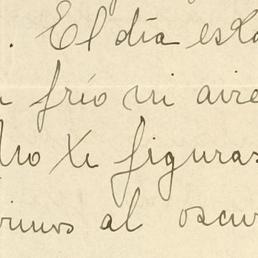 . El día esta
frío ni aire
No te figuras
al oscur